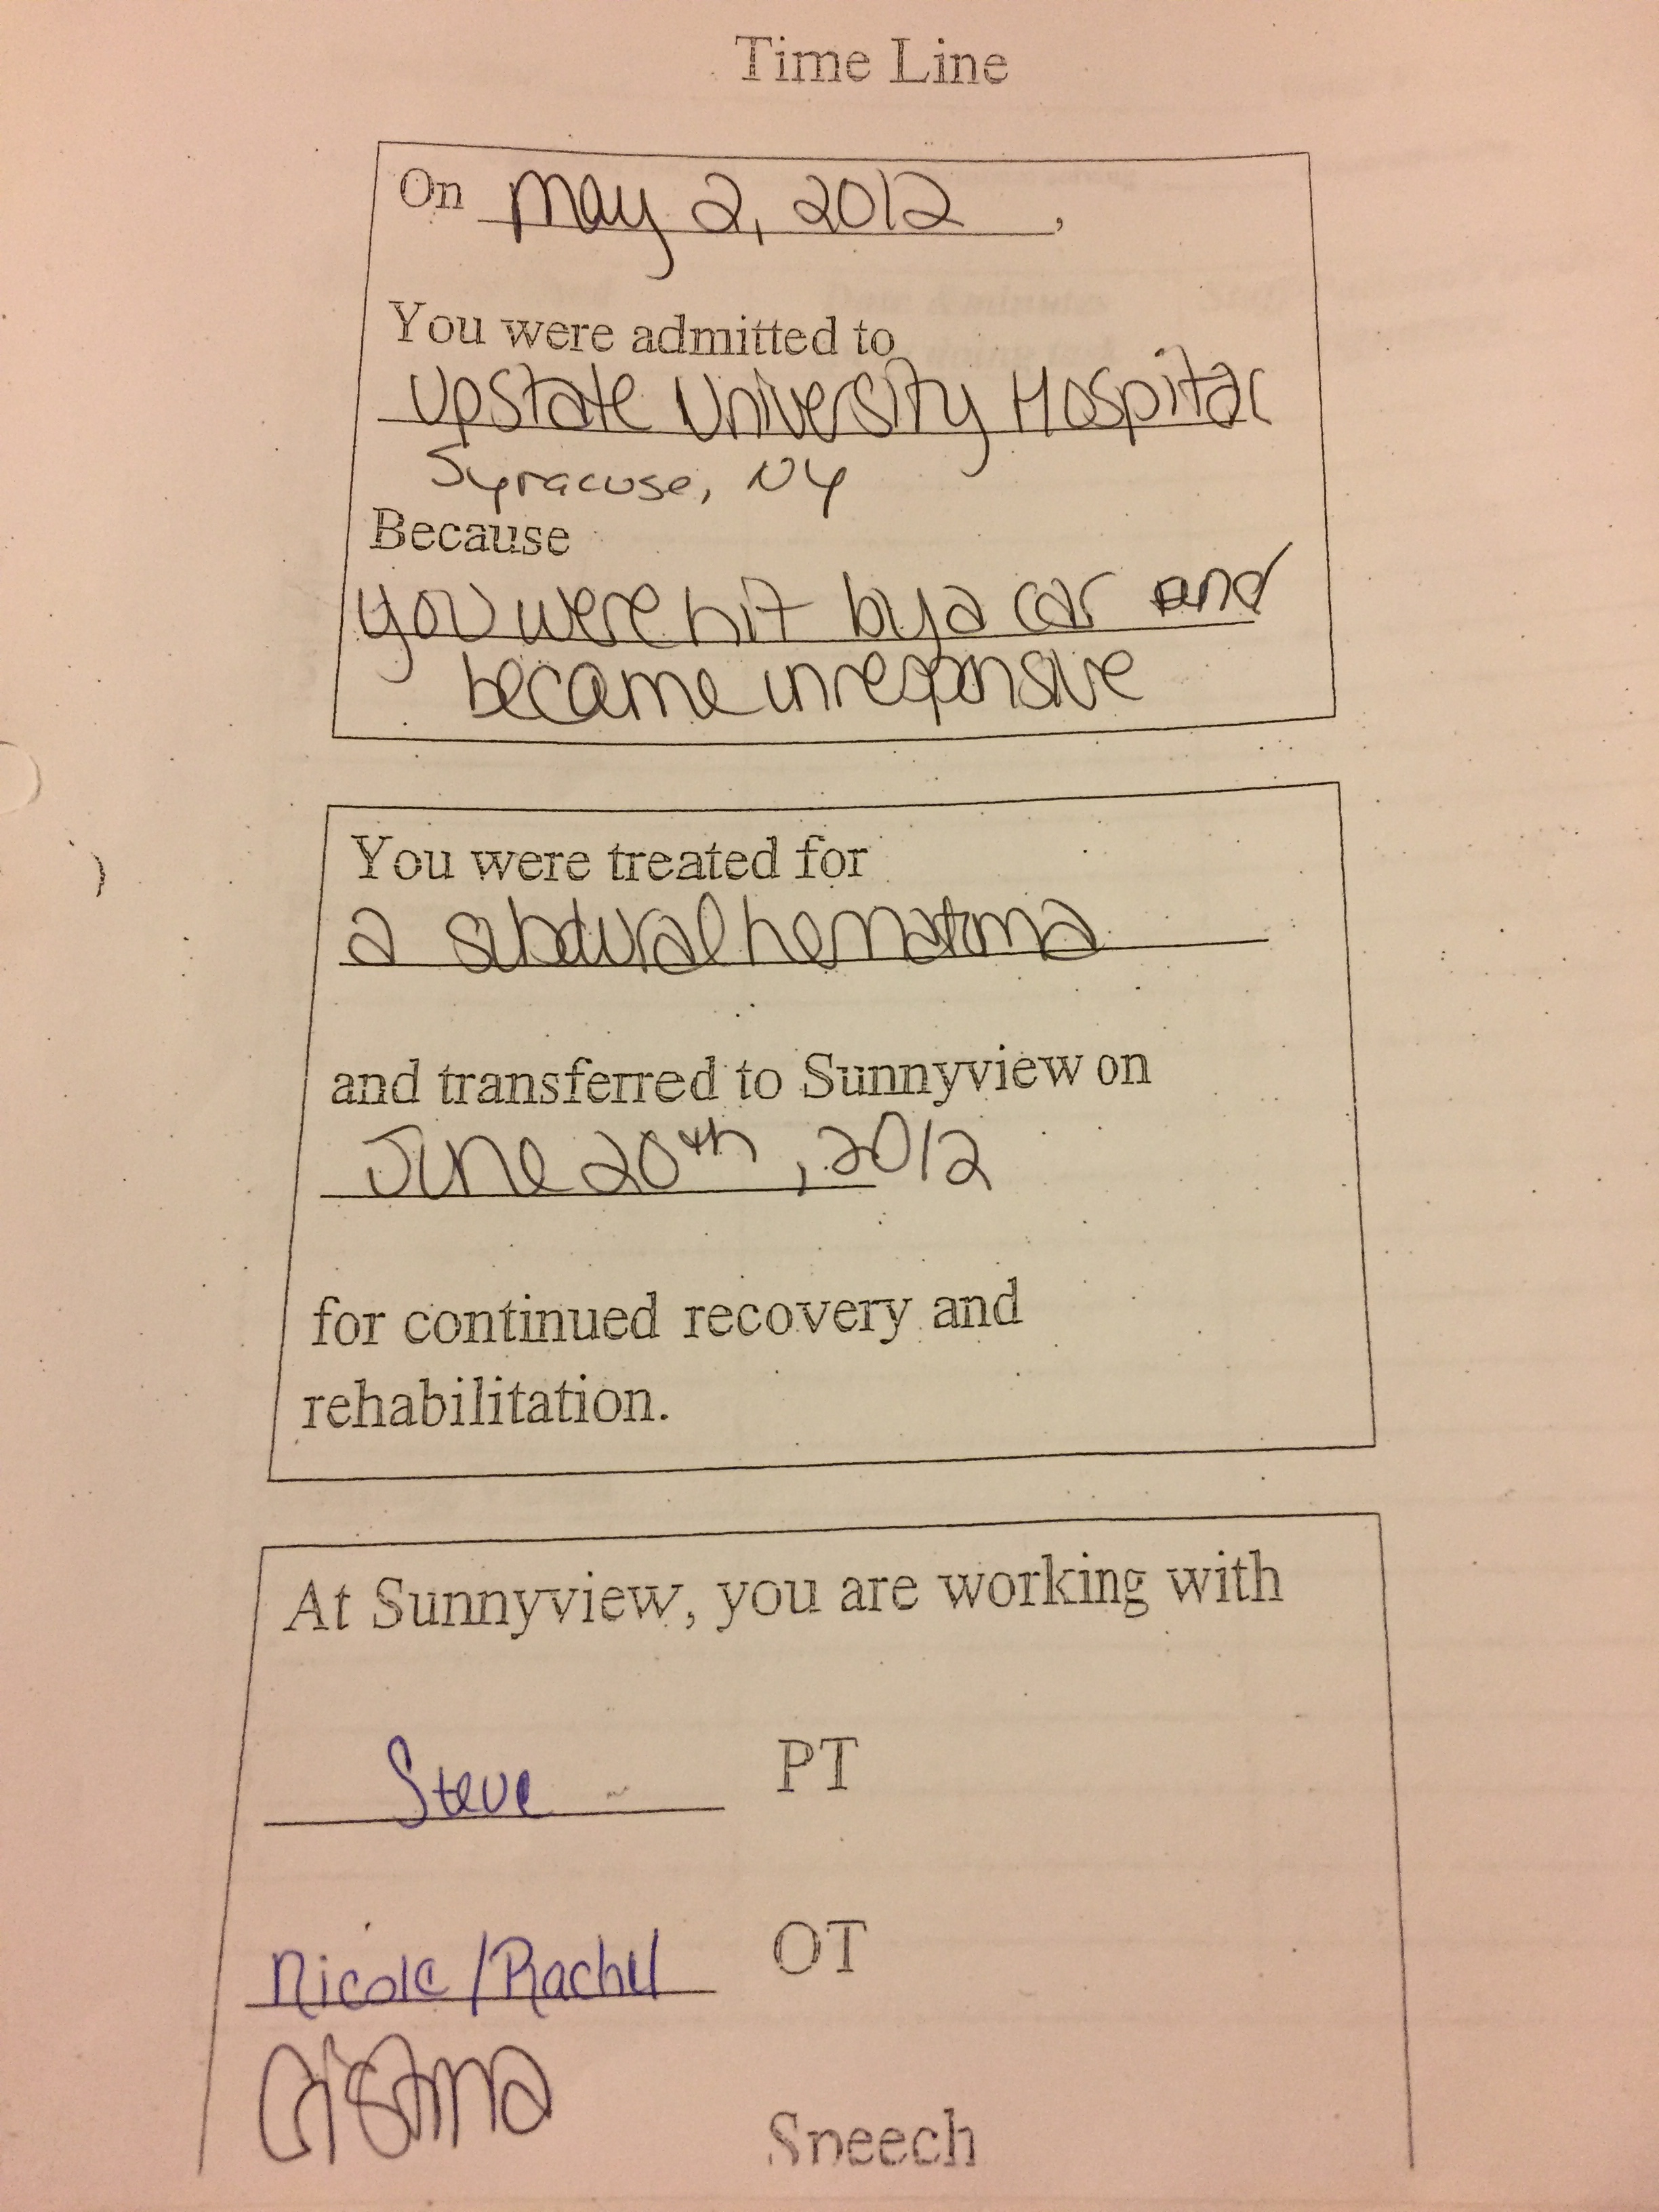 Time Line
On May 2, 2012,
You were admitted to
Upstate University Hospital
Syracuse, NY
Because
you were hit by a car and
became unresponsive
You were treated for
a subdural hematoma
and transferred to Sunnyview on
June 20th, 2012
for continued recovery and
rehabilitation.
At Sunnyview, you are working with
Steve PT
Nicole/Rachel OT
Speech